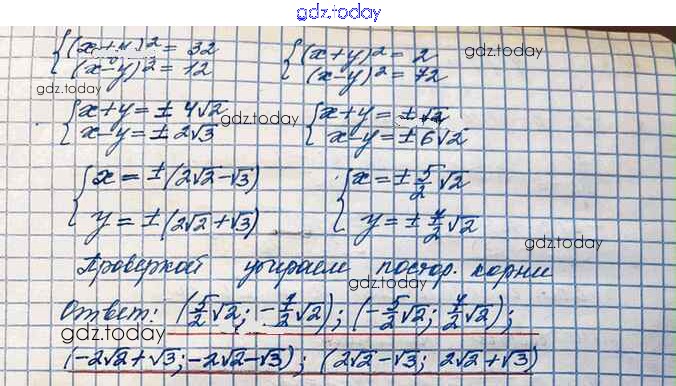 gdz.today
{(x+y)² = 32 {(x+y)² = 2 gdz.today
(x-y)² = 12 (x-y)² = 72
gdz.today
{x+y = ± 4√2 gdz.today {x+y = ±√2
x-y = ± 2√3 x-y = ± 6√2
{x = ± (2√2-√3) {x = ± 5/2 √2
y = ± (2√2+√3) y = ± 7/2 √2
gdz.today
Проверкой убираем постор. корни
gdz.today
Ответ: (5/2 √2; -7/2 √2); (-5/2 √2; 7/2 √2);
gdz.today
(-2√2+√3; -2√2-√3); (2√2-√3; 2√2+√3)